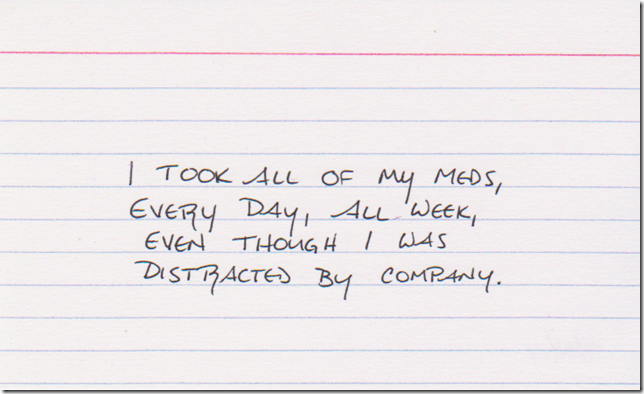 I TOOK ALL OF MY MEDS,
EVERY DAY, ALL WEEK,
EVEN THOUGH I WAS
DISTRACTED BY COMPANY.